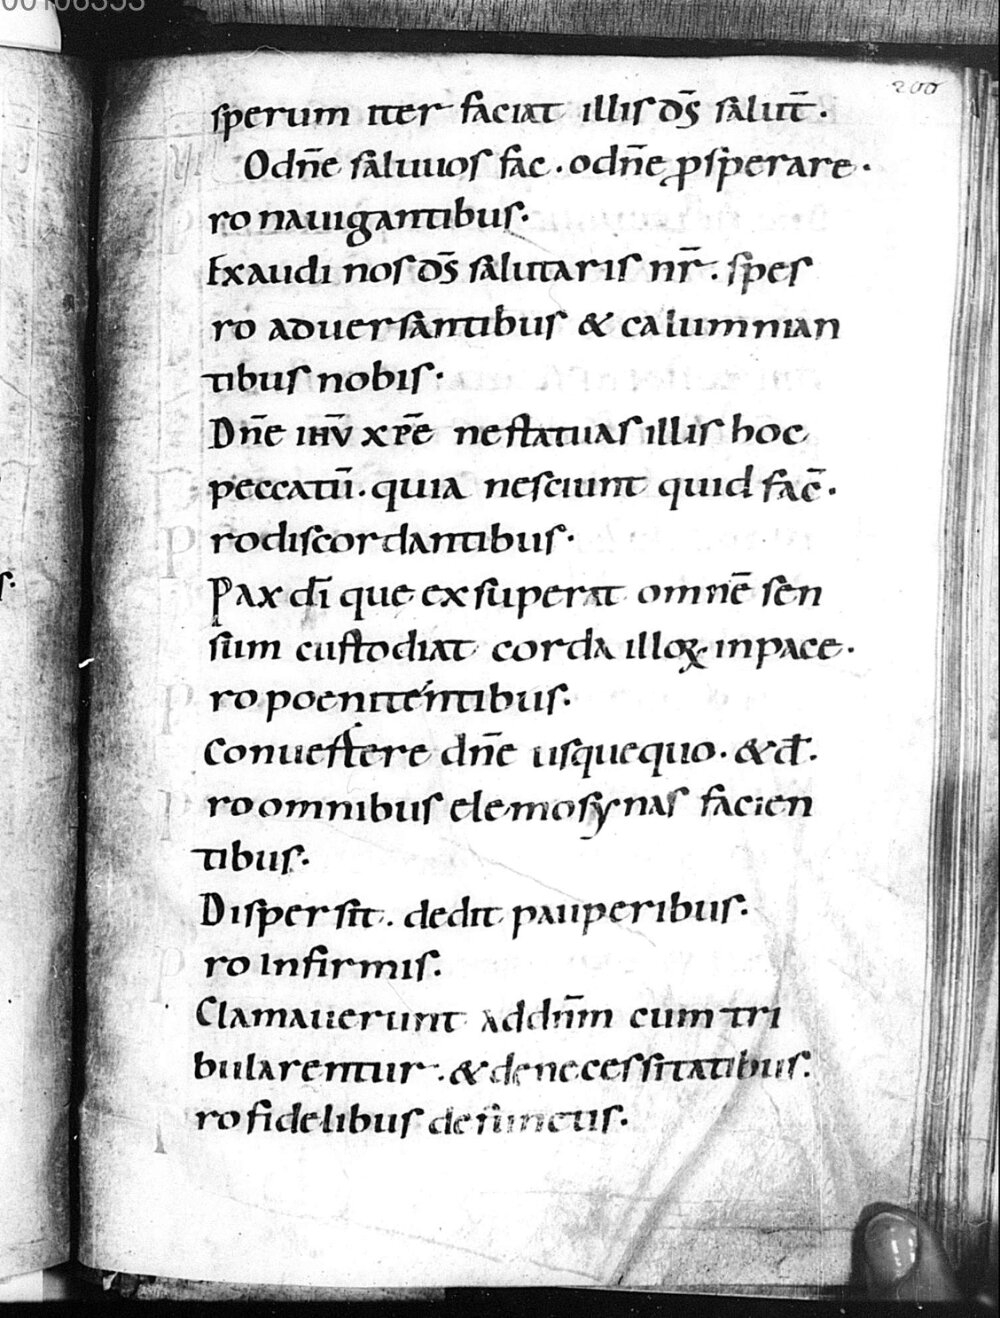 00106353
200
sperum iter faciat illis dS̄ salut̄.
V O dn̄e saluuos fac . o dn̄e ꝓsperare .
P ro nauigantibus.
Exaudi nos dS̄ salutaris nr̄ . spes
P ro aduersantibus & calumnian
tibus nobis.
Dn̄e iHv̄ xp̄e ne statuas illis hoc
peccatū . quia nesciunt quid fac̄ .
P ro discordantibus.
Pax dī que exsuperat omnē sen
sum custodiat corda illoꝝ in pace .
P ro poenitentibus.
Conuertere dn̄e usquequo . & đ .
P ro omnibus elemosynas facien
tibus.
Dispersit . dedit pauperibus.
P ro infirmis.
Clamauerunt ad dn̄m cum tri
bularentur . & de necessitatibus.
P ro fidelibus defunctis.